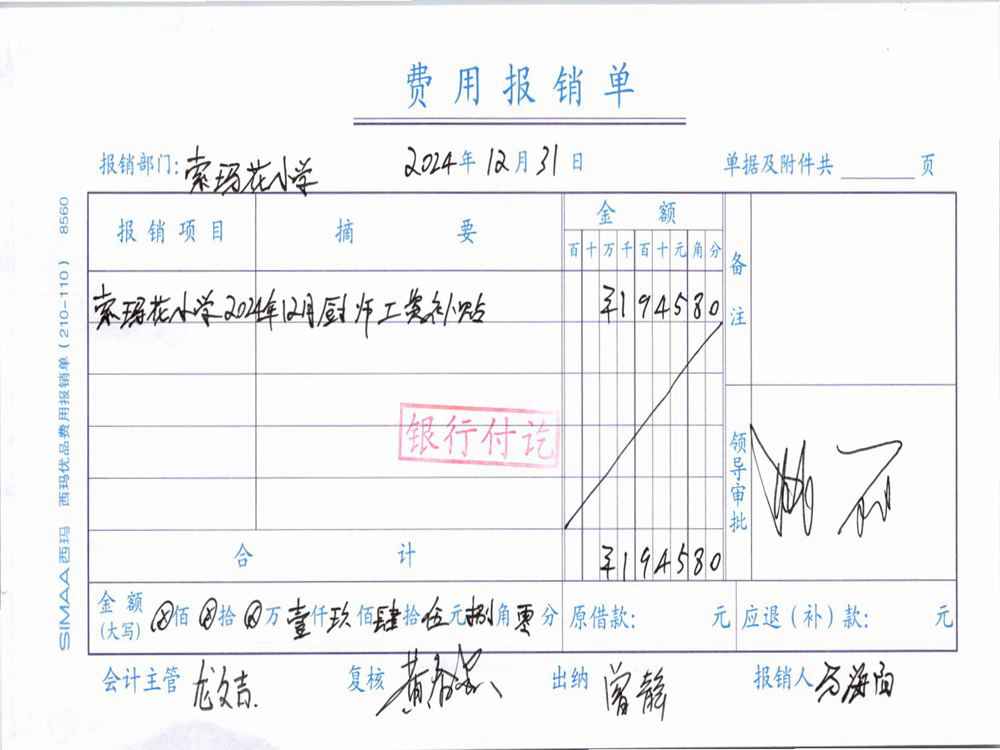 费用报销单
报销部门: 索玛花小学 2024年 12月 31日 单据及附件共 页
报销项目 摘要 金额 备注
百 十 万 千 百 十 元 角 分
索玛花小学2024年12月厨师工资补贴 ¥194580
银行付讫
领导审批
合计 ¥194580
金额(大写) ⊗佰 ⊗拾 ⊗万 壹仟 玖佰 肆拾 伍元 捌角 零分 原借款: 元 应退(补)款: 元
会计主管 龙文吉 复核 出纳 曾静 报销人 马海
SIMAA西玛 西玛优品费用报销单(210-110) 8560